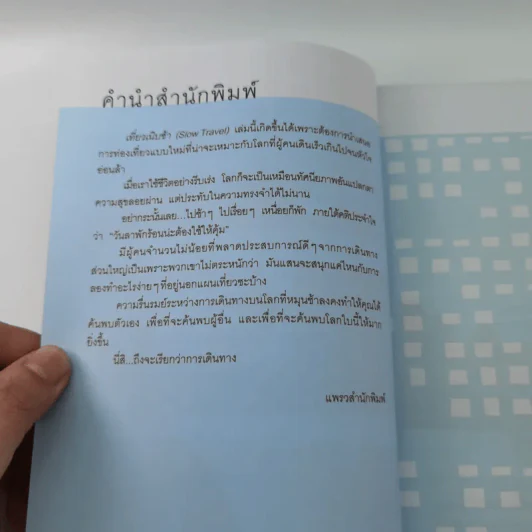 คำนำสำนักพิมพ์
เที่ยวเนิบช้า (Slow Travel) เล่มนี้เกิดขึ้นได้เพราะต้องการนำเสนอ
การท่องเที่ยวแบบใหม่ที่น่าจะเหมาะกับโลกที่ผู้คนเดินเร็วเกินไปจนหัวใจ
อ่อนล้า
เมื่อเราใช้ชีวิตอย่างรีบเร่ง โลกก็จะเป็นเหมือนทัศนียภาพอันแปลกตา
ความสุขลอยผ่าน แต่ประทับในความทรงจำได้ไม่นาน
อย่ากระนั้นเลย...ไปช้าๆ ไปเรื่อยๆ เหนื่อยก็พัก ภายใต้คติประจำใจ
ว่า "วันลาพักร้อนน่ะต้องใช้ให้คุ้ม"
มีผู้คนจำนวนไม่น้อยที่พลาดประสบการณ์ดีๆ จากการเดินทาง
ส่วนใหญ่เป็นเพราะพวกเขาไม่ตระหนักว่า มันแสนจะสนุกแค่ไหนกับการ
ลองทำอะไรง่ายๆ ที่อยู่นอกแผนเที่ยวซะบ้าง
ความรื่นรมย์ระหว่างการเดินทางบนโลกที่หมุนช้าลงคงทำให้คุณได้
ค้นพบตัวเอง เพื่อที่จะค้นพบผู้อื่น และเพื่อที่จะค้นพบโลกใบนี้ให้มาก
ยิ่งขึ้น
นี่สิ...ถึงจะเรียกว่าการเดินทาง
แพรวสำนักพิมพ์